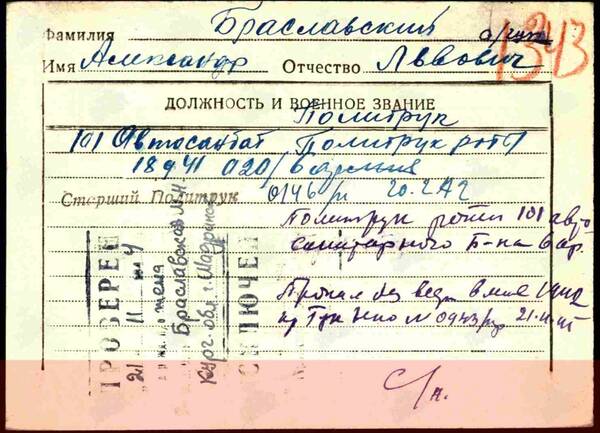 Фамилия Браславский
1343
Имя Александр Отчество Львович
ДОЛЖНОСТЬ И ВОЕННОЕ ЗВАНИЕ
Политрук
101 Автосанбат Политрук роты
18 VI 41 020/6 армия
Старший Политрук 0146/п 20.2.42
Политрук роты 101 авто
санитарного б-на 6 ар.
Пропал без вести в мае 1942
пр ГУК НКО № 0943/пр 21.
ПРОВЕРЕН
21 11
жена
Браславская М.Н
Кург. обл. г. Шадринск
ИСКЛЮЧЕН